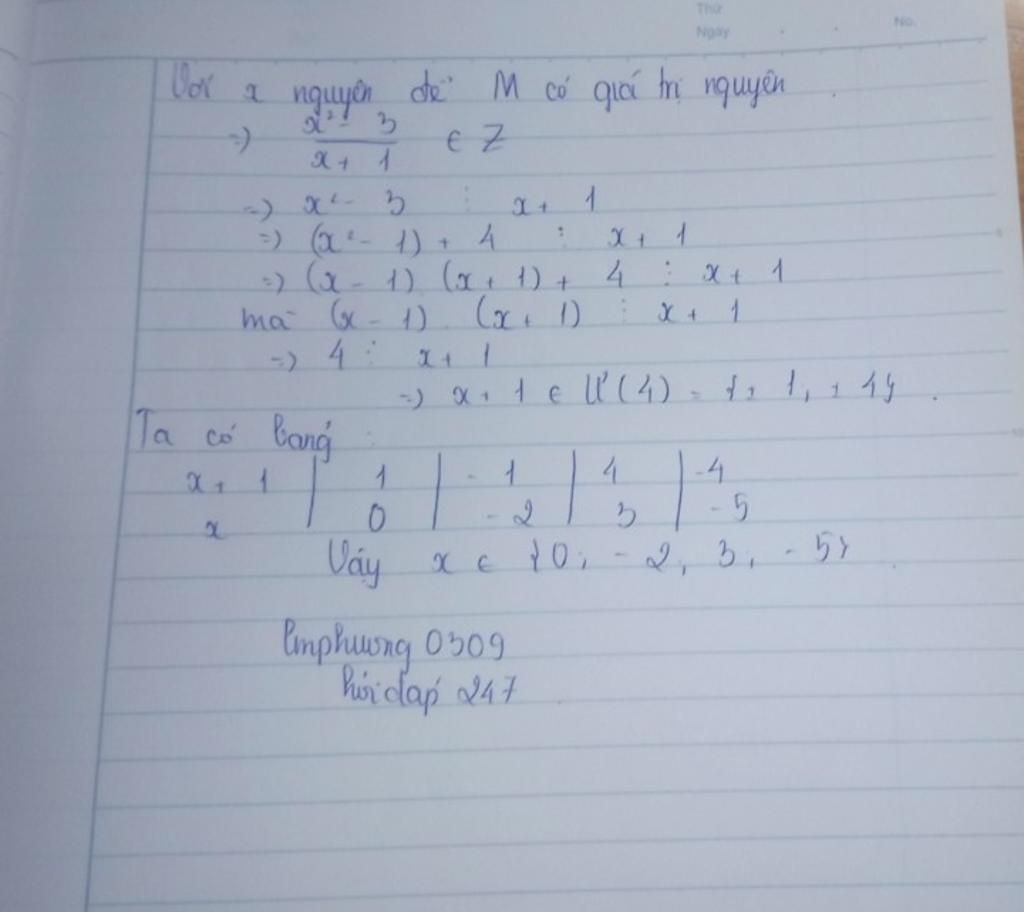 Thứ
Ngày
No.
Với x nguyên để M có giá trị nguyên
=) x² - 3 / x + 1 ∈ Z
=) x² - 3 ⋮ x + 1
=) (x² - 1) + 4 ⋮ x + 1
=) (x - 1) (x + 1) + 4 ⋮ x + 1
mà (x - 1) (x + 1) ⋮ x + 1
=) 4 ⋮ x + 1
=) x + 1 ∈ Ư(4) = {± 1, ± 4}.
Ta có bảng :
x + 1 | 1 | - 1 | 4 | - 4
x | 0 | - 2 | 3 | - 5
Vậy x ∈ {0; - 2, 3, - 5}
lmphuong 0309
hỏi đáp 247